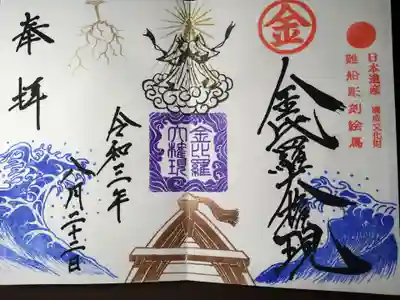 金
日本遺産 構成文化財
難船彫刻絵馬
金毘羅大権現
金比羅
大権現
奉拝
令和三年
八月二十二日